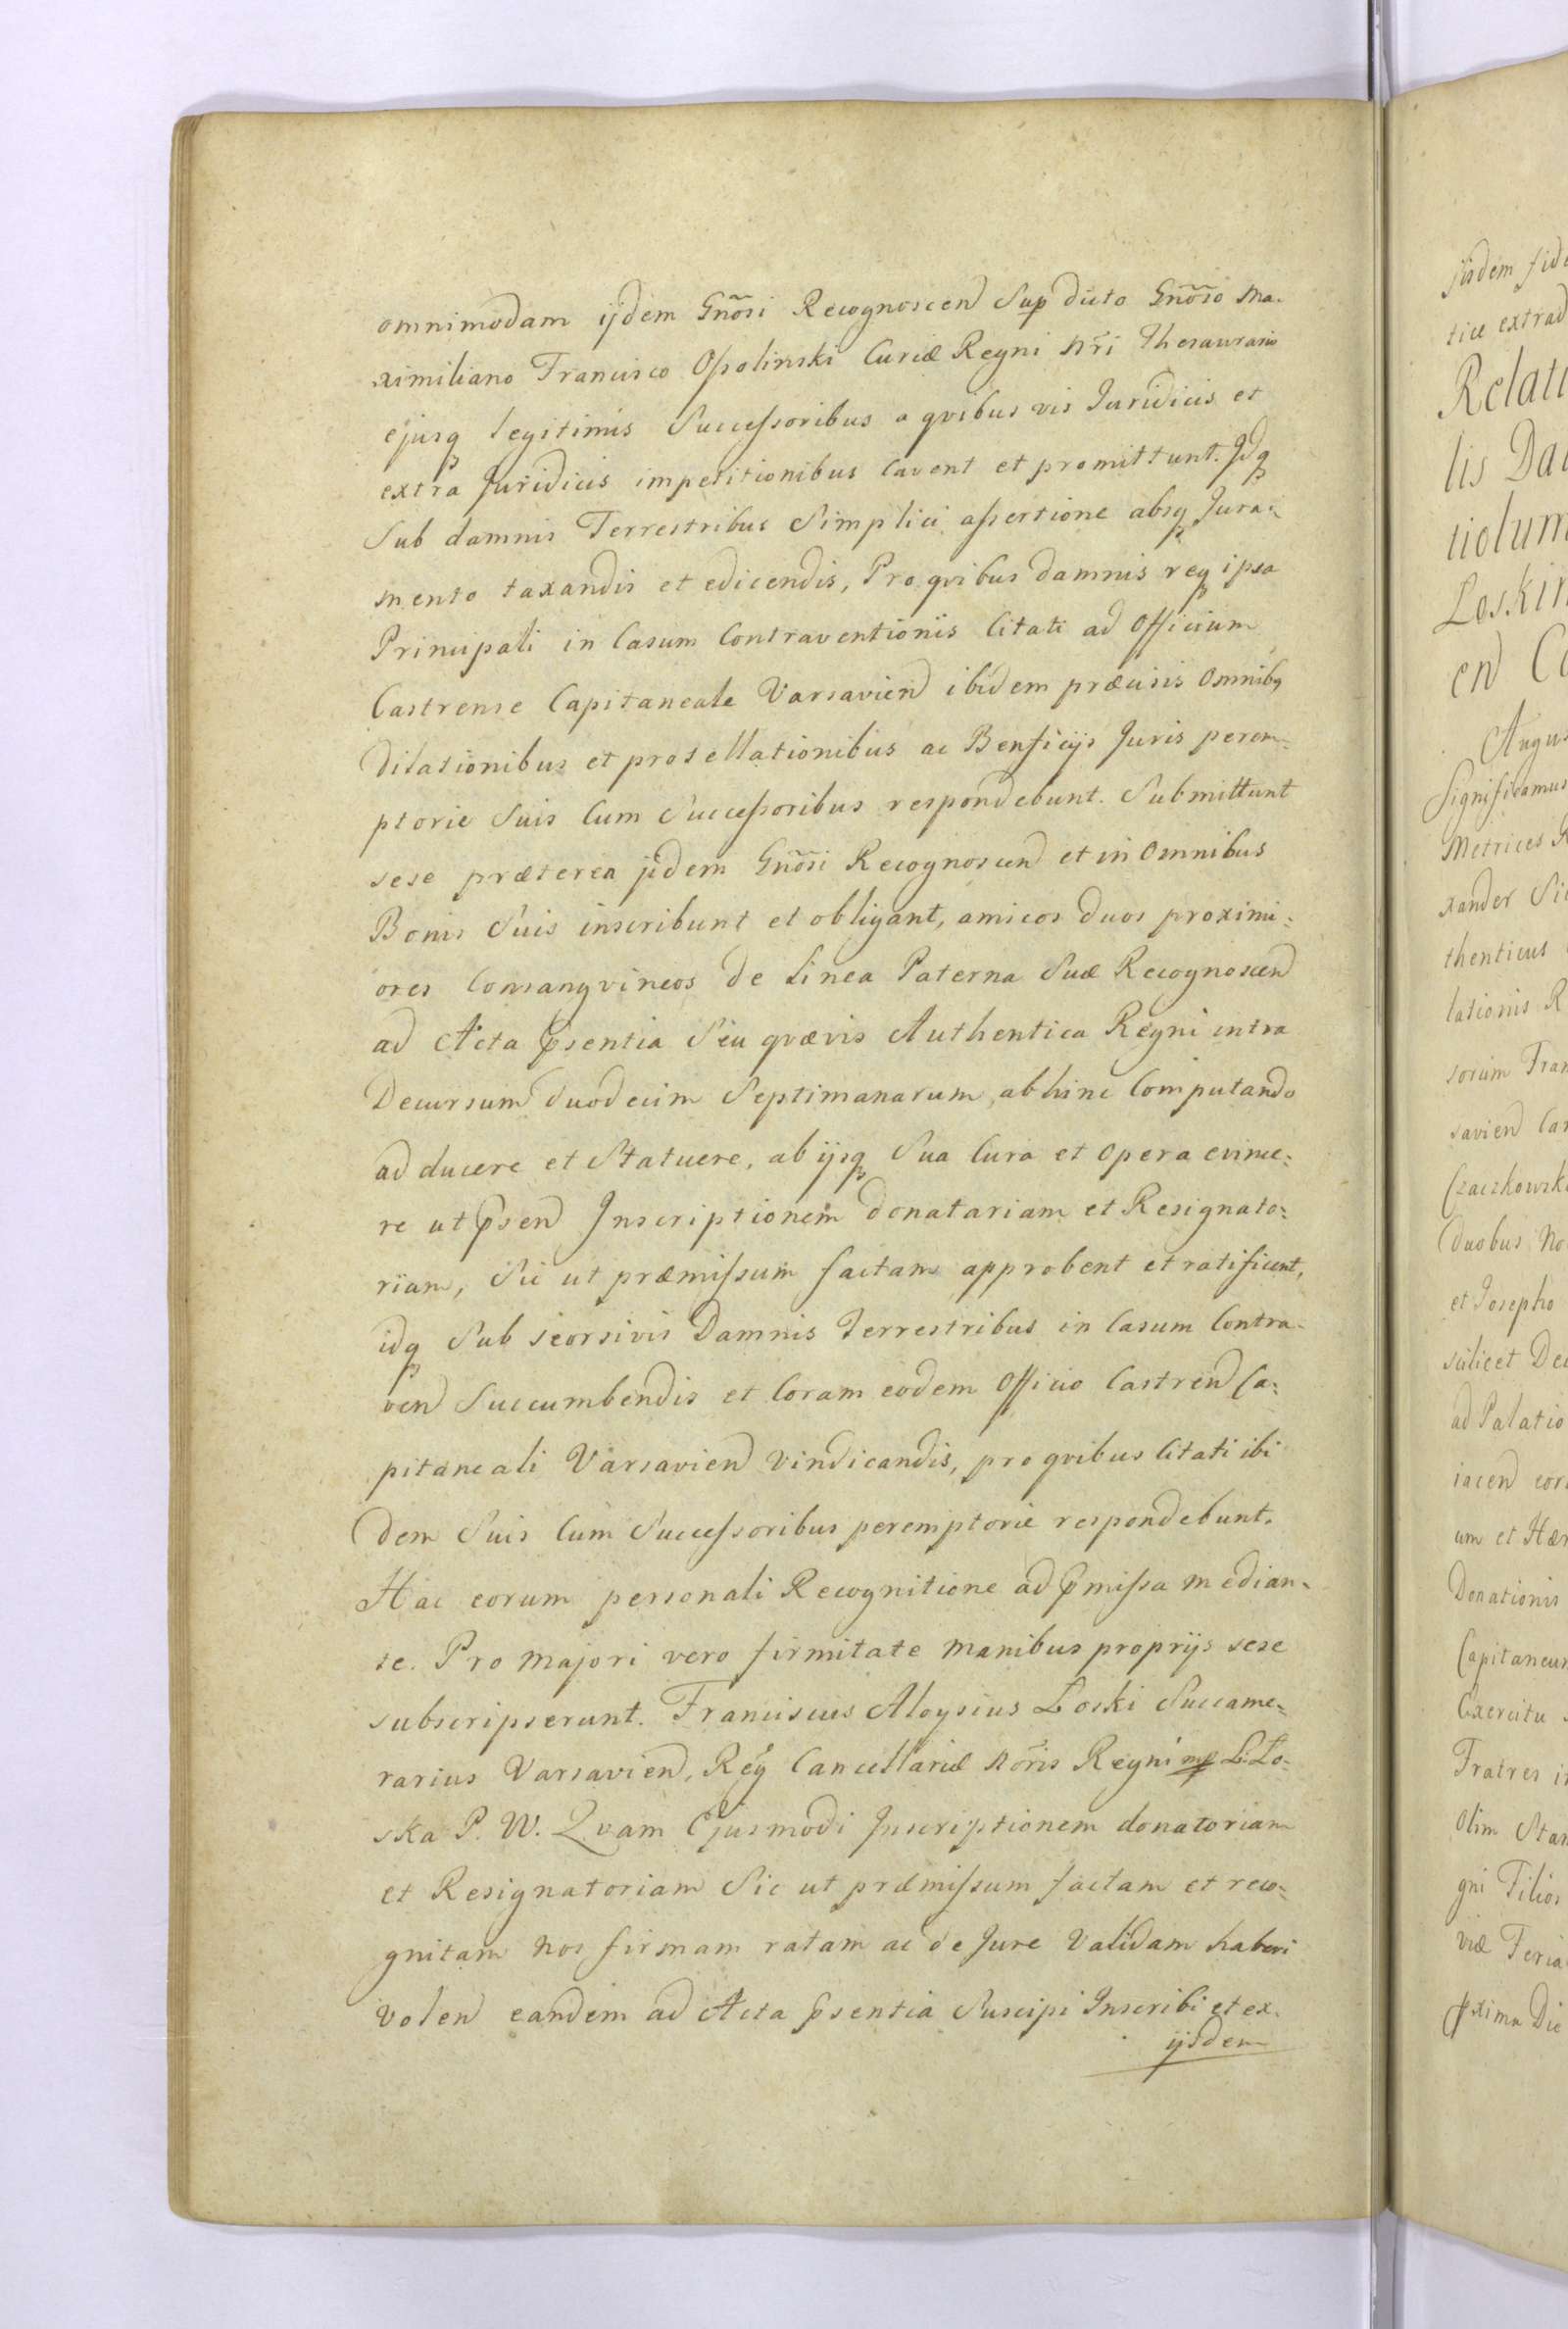 omnimodam ijdem Gñosi Recognoscend Sup dicto Gñoso Ma-
ximiliano Francisco Ossolinski Curiæ Regni Nři Thesaurario
ejusq legitimis Successoribus a qvibus vis Juridicis et
extra Juridicis impetitionibus Cavent et promittunt. Jdq
Sub damnis Terrestribus Simplici assertione absq Jura-
mento taxandis et edicendis, Pro qvibus damnis req ipsa
Principali in Casum Contraventionis Citati ad Officium
Castrense Capitaneale Varsaviend ibidem præcisis Omnibq
Dilationibus et protellationibus ac Benficijs Juris perem-
ptorie Suis Cum Successoribus respondebunt. Submittunt
sese præterea jidem Gñosi Recognoscend et in Omnibus
Bonis Suis inscribunt et obligant, amicos duos proximi-
ores Consangvineos de Linea Paterna Suæ Recognoscend
ad Acta Psentia Seu qvævis Authentica Regni intra
Decursum duodecim Septimanarum abhinc Computando
ad ducere et Statuere, ab ijsq Sua Cura et Opera evince-
re ut Psend Jnscriptionem donatariam et Resignato-
riam, Sic ut præmissum factam approbent et ratificent,
idq Sub seorsivis Damnis Terrestribus in Casum Contra-
vend Succumbendis et Coram eodem Officio Castrend Ca-
pitaneali Varsaviend vindicandis, pro qvibus Citati ibi
dem Suis Cum Successoribus peremptorie respondebunt.
Hac eorum personali Recognitione ad Pmissa median-
te. Pro majori vero firmitate manibus proprijs sese
subscripserunt. Franciscus Aloysius Łoski Succame-
rarius Varsaviend, Reg Cancellariæ Nõris Regni mp L. Ło-
ska P. W. Qvam Ejusmodi Jnscriptionem donatoriam
et Resignatoriam Sic ut præmissum factam et reco-
gnitam Nos firmam ratam ac de Jure Validam haberi
Volend eandem ad Acta Psentia Suscipi Jnscribi et ex.
ijsdem
jisdem
tice extrad
Relati
lis Da
tiolum
Loskin
end
Augus
Significamus
Metrices R
xander
thenticus
lationis R
sorum Fran
saviend Cas
Czaczkowski
duobus No
et Josepho
scilicet Dec
ad Palatio
iacend
um et Hær
Donationis
Capitaneum
Exercitu
Fratres
Olim Stan
gni Filios
viæ Feria
Pxima Die